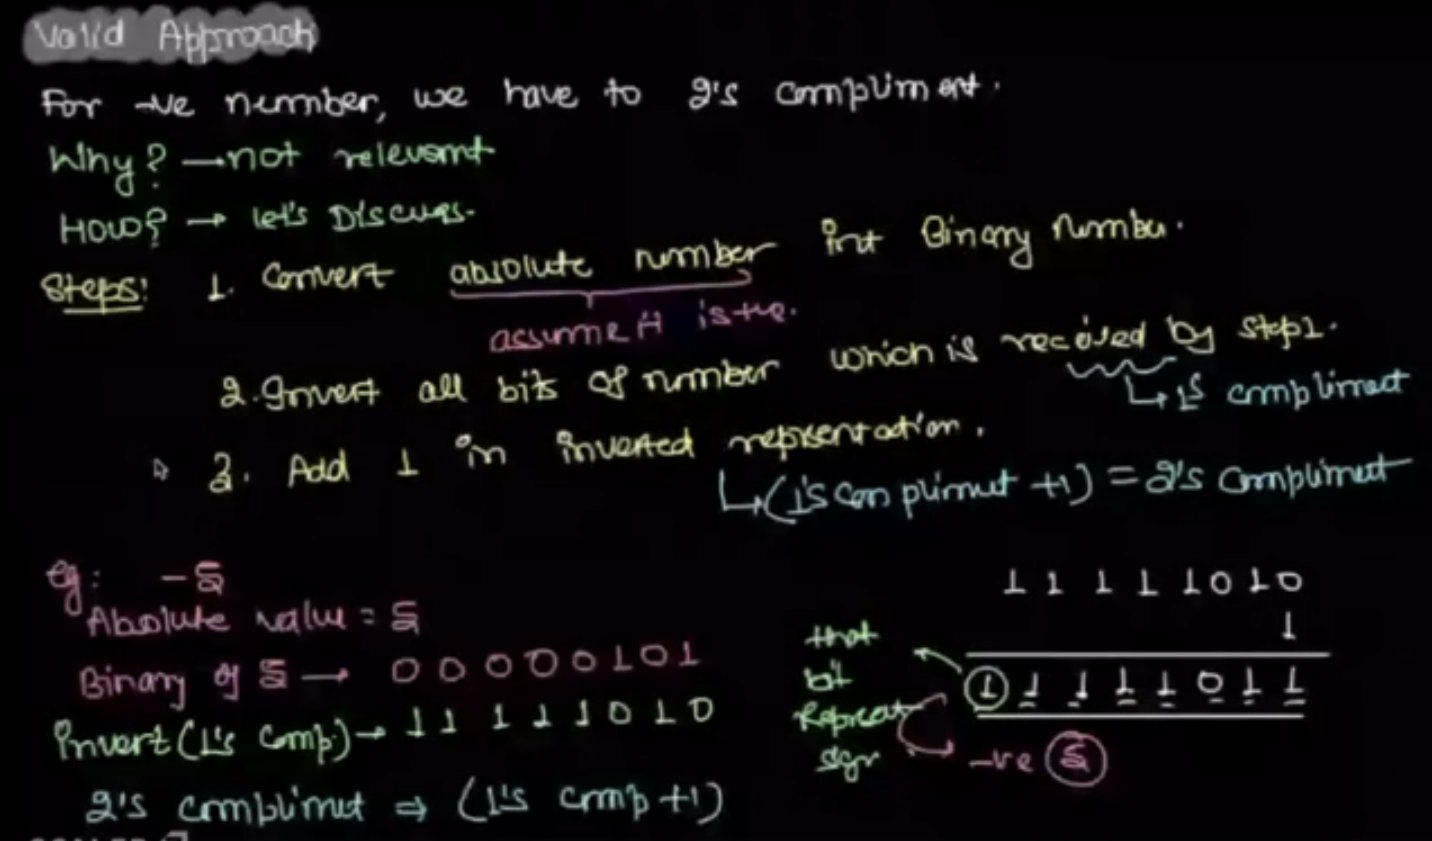 Valid Approach
For -ve number, we have to 2's compliment.
Why? → not relevant
How? → let's Discuss.
Steps: 1. Convert absolute number int Binary Number.
assume it is +ve.
2. Invert all bits of number which is recived by step1.
↳ 1's complimet
3. Add 1 in inverted representation.
↳ (1's complimet +1) = 2's complimet
eg: -5
Absolute value = 5
Binary of 5 → 0 0 0 0 0 1 0 1
Invert (1's comp.) → 1 1 1 1 1 0 1 0
2's complimet ⇒ (1's comp +1)
1 1 1 1 1 0 1 0
1
1 1 1 1 1 0 1 1
that
bit
Repreat
sign
-ve 5